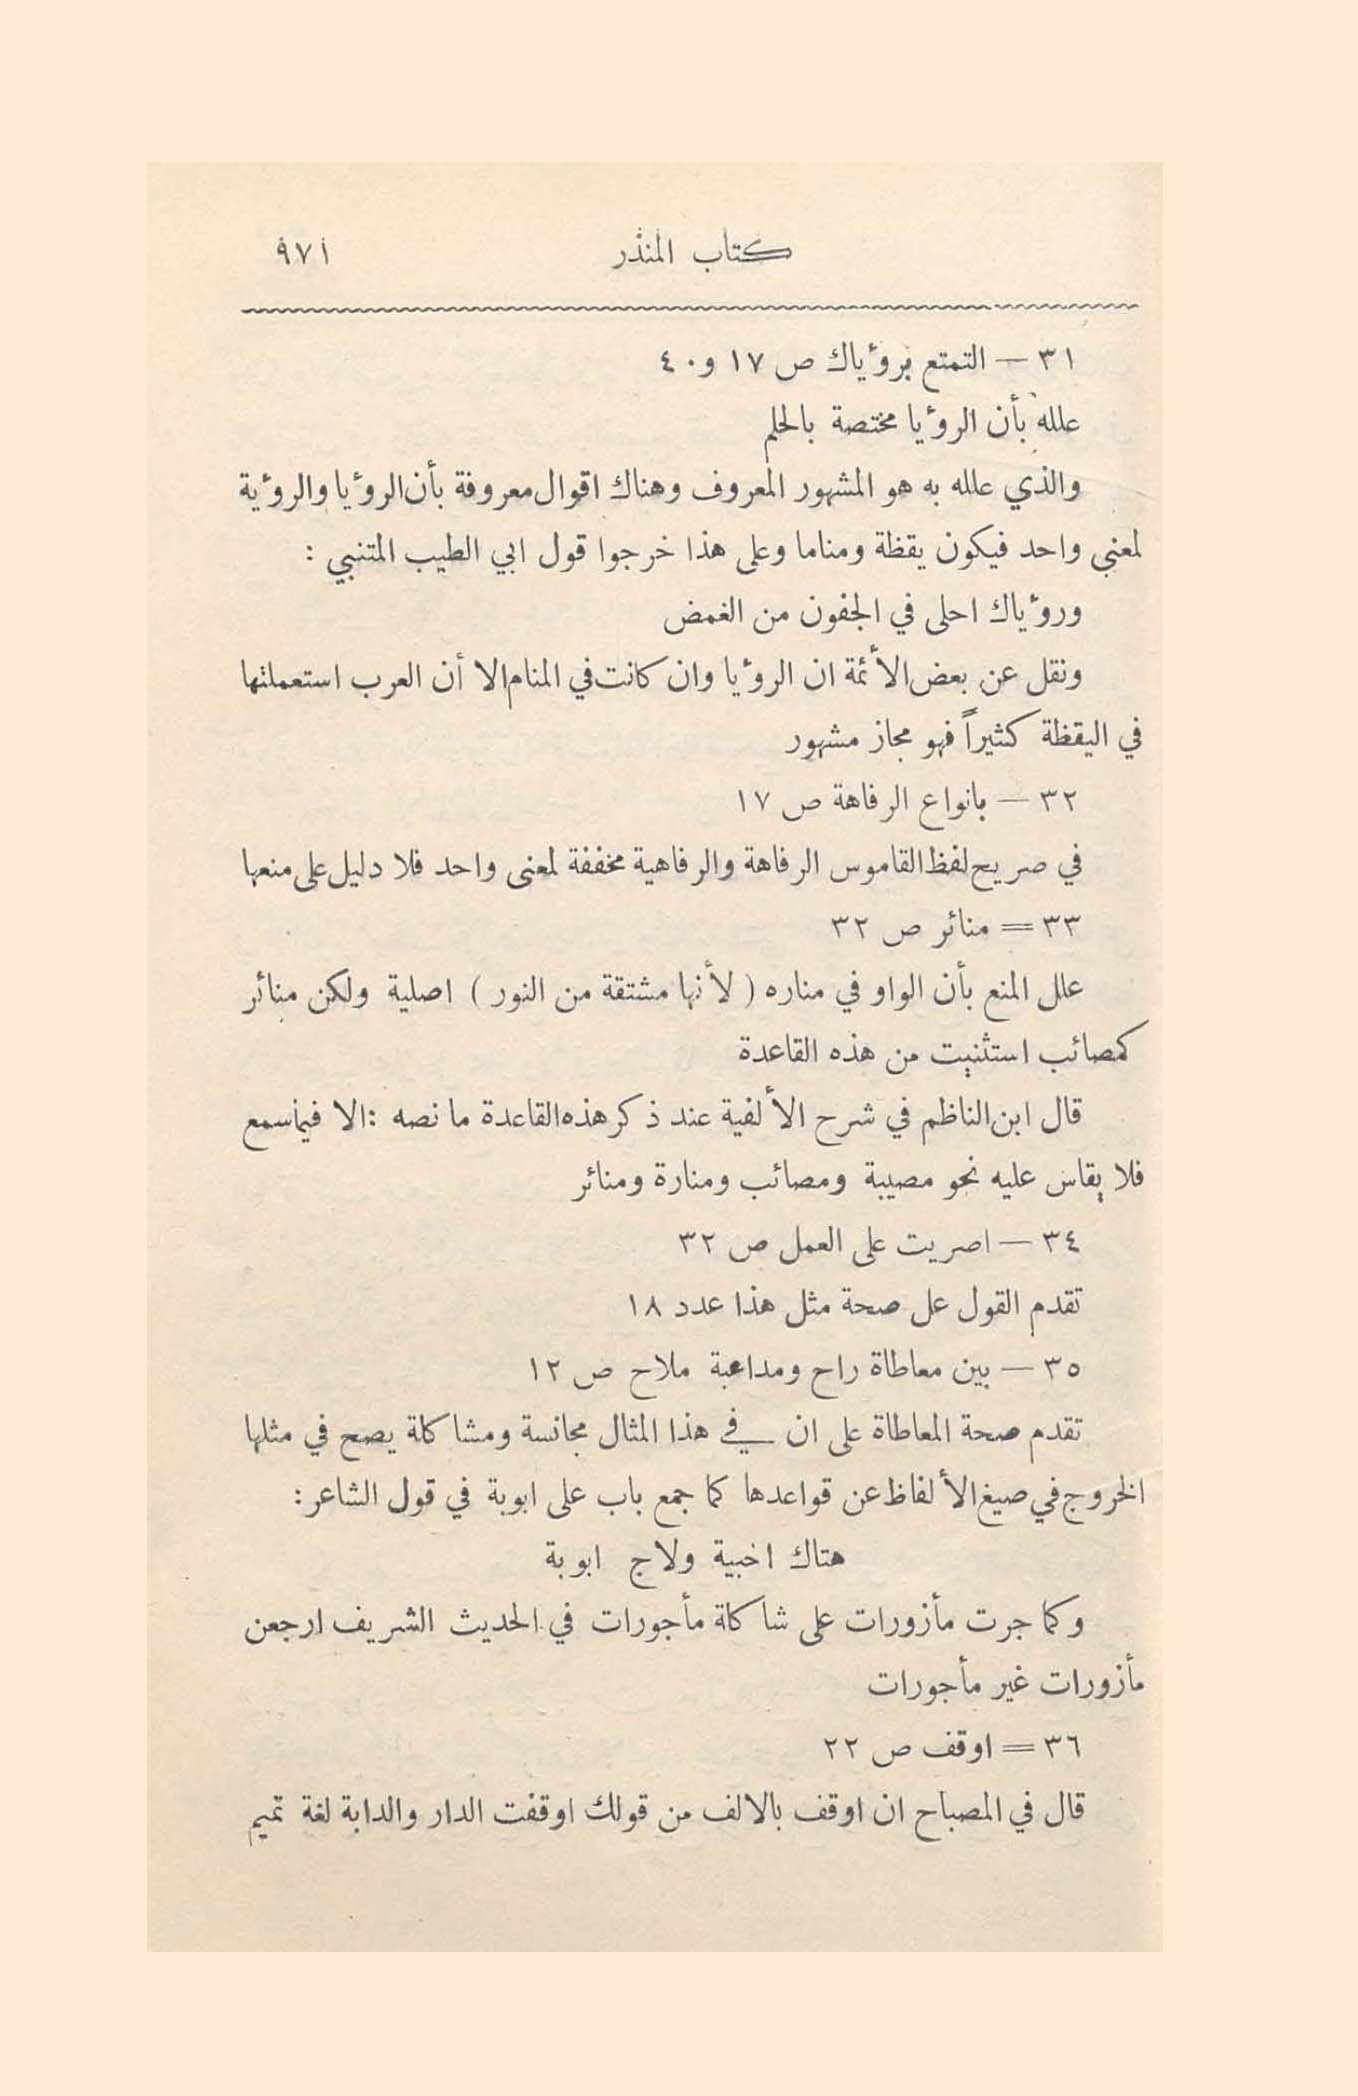 كتاب المنذر ٩٧١
٣١ — التمتع برؤياك ص ١٧ و ٤٠
علله بأن الرؤيا مختصة بالحلم
والذي علله به هو المشهور المعروف وهناك اقوال معروفة بأن الرؤيا والرؤية
لمعنى واحد فيكون يقظة ومناما وعلى هذا خرجوا قول ابي الطيب المتنبي :
ورؤياك احلى في الجفون من الغمض
ونقل عن بعض الأئمة ان الرؤيا وان كانت في المنام الا أن العرب استعملتها
في اليقظة كثيراً فهو مجاز مشهور
٣٢ — بانواع الرفاهة ص ١٧
في صريح لفظ القاموس الرفاهة والرفاهية مخففة لمعنى واحد فلا دليل على منعها
٣٣ = منائر ص ٣٢
علل المنع بأن الواو في مناره ( لأنها مشتقة من النور ) اصلية ولكن منائر
كمصائب استثنيت من هذه القاعدة
قال ابن الناظم في شرح الألفية عند ذكر هذه القاعدة ما نصه : الا فيما سمع
فلا يقاس عليه نحو مصيبة ومصائب ومنارة ومنائر
٣٤ — اصريت على العمل ص ٣٢
تقدم القول عل صحة مثل هذا عدد ١٨
٣٥ — بين معاطاة راح ومداعبة ملاح ص ١٢
تقدم صحة المعاطاة على ان في هذا المثال مجانسة ومشاكلة يصح في مثلها
الخروج في صيغ الألفاظ عن قواعدها كما جمع باب على ابوبة في قول الشاعر :
هتاك اخبية ولاج ابوبة
وكما جرت مأزورات على شاكلة مأجورات في الحديث الشريف ارجعن
مأزورات غير مأجورات
٣٦ = اوقف ص ٢٢
قال في المصباح ان اوقف بالالف من قولك اوقفت الدار والدابة لغة تميم